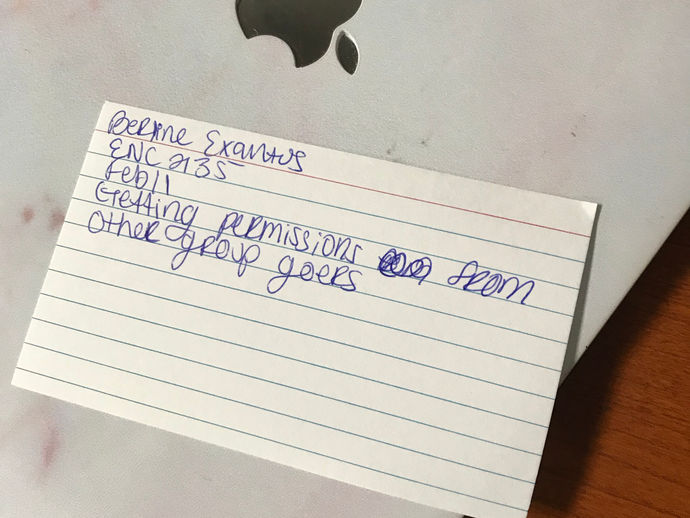 Berline Exantus
ENC 2135
Feb 11
Getting permissions from
other group goers